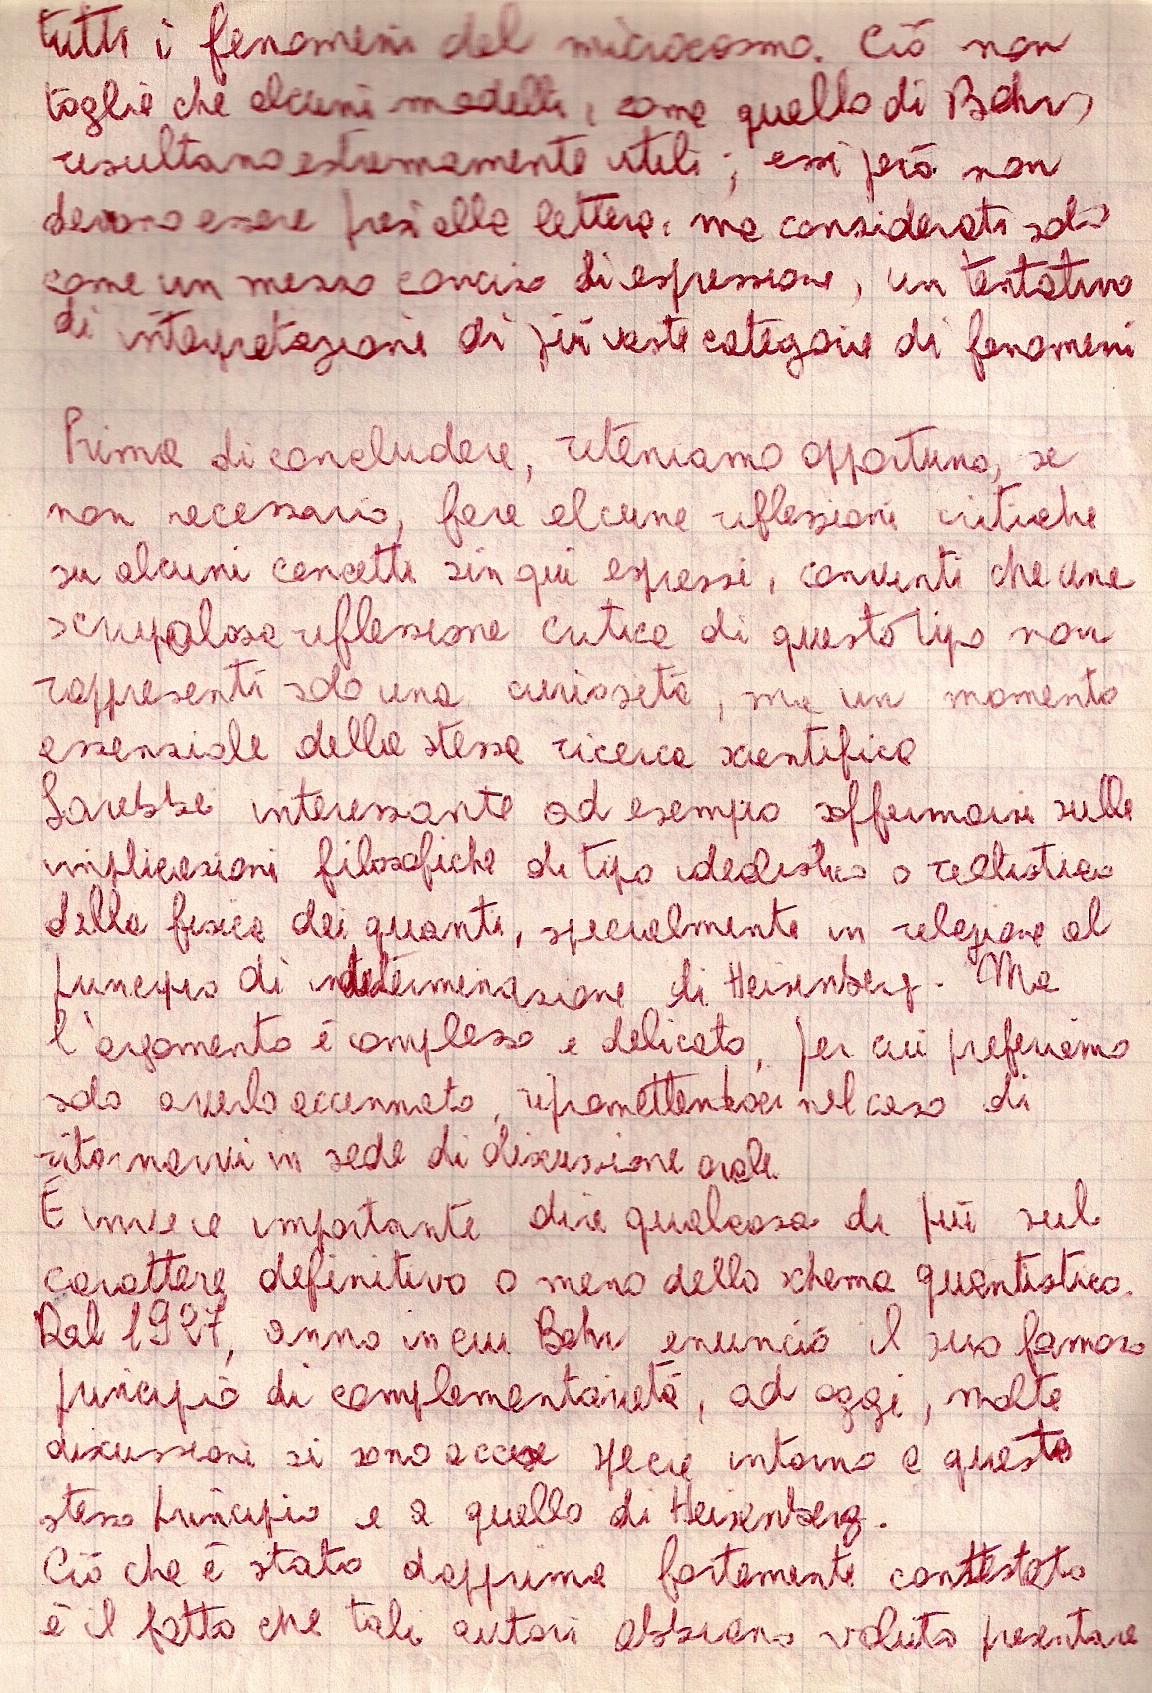 tutti i fenomeni del microcosmo. Ciò non
toglie che alcuni modelli, come quello di Bohr,
risultano estremamente utili; essi però non
devono essere presi alla lettera, ma considerati solo
come un mezzo conciso di espressione, un tentativo
di interpretazione di più vaste categorie di fenomeni
Prima di concludere, riteniamo opportuno, se
non necessario, fare alcune riflessioni critiche
su alcuni concetti sin qui espressi, convinti che una
scrupolosa riflessione critica di questo tipo non
rappresenti solo una curiosità, ma un momento
essenziale della stessa ricerca scientifica
Sarebbe interessante ad esempio soffermarsi sulle
implicazioni filosofiche di tipo idealistico o realistico
della fisica dei quanti, specialmente in relazione al
principio di indeterminazione di Heisenberg. Ma
l'argomento è complesso e delicato, per cui preferiamo
solo averlo accennato, ripromettendoci nel caso di
ritornarvi in sede di discussione orale.
È invece importante dire qualcosa di più sul
carattere definitivo o meno dello schema quantistico.
Dal 1927, anno in cui Bohr enunciò il suo famoso
principio di complementarietà, ad oggi, molte
discussioni si sono accese specie intorno a questo
stesso principio e a quello di Heisenberg.
Ciò che è stato dapprima fortemente contestato
è il fatto che tali autori abbiano voluto presentare